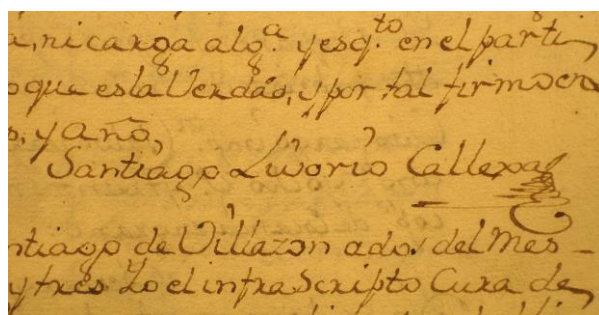 a, ni carga alg.ª y es q.to en el parti
o que es la Verdad, y por tal firmo en
s, y año,
Santiago Liborio Callexa
ntiago de Villazon a dos del Mes -
y tres Yo el infra Scripto Cura de